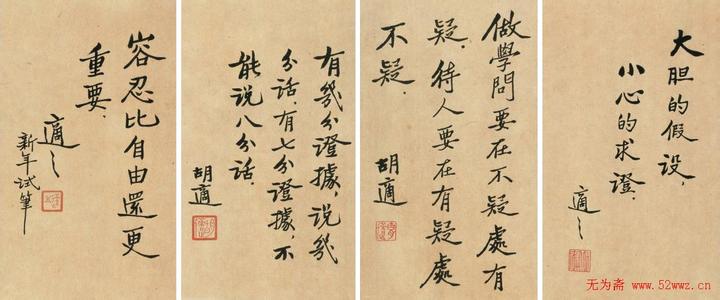 大胆的假设,
小心的求證.
適之
做學問要在不疑處有
疑.待人要在有疑處
不疑.
胡適
有幾分證據,说幾
分话.有七分證據,不
能说八分话.
胡適
容忍比自由還更
重要.
適之
新年试筆
无为斋 www.52wwz.cn